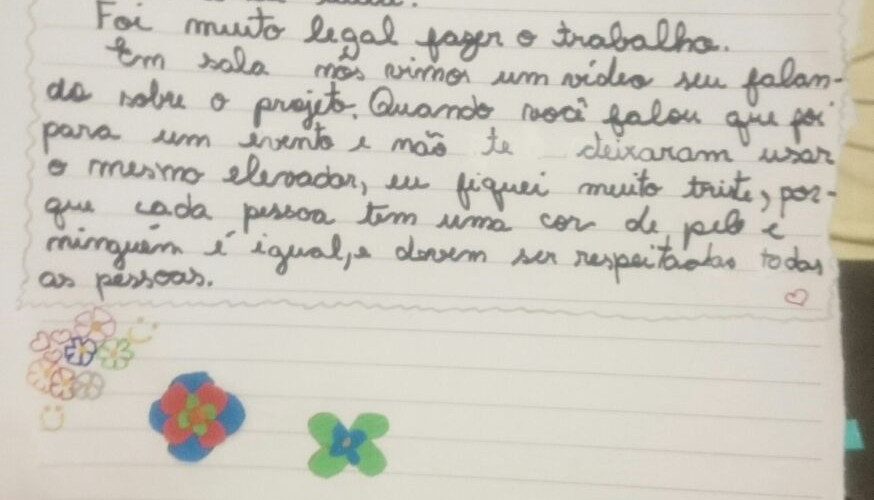 Foi muito legal fazer o trabalho.
Em sala nós vimos um vídeo seu falan-
do sobre o projeto. Quando você falou que foi
para um evento e não te deixaram usar
o mesmo elevador, eu fiquei muito triste, por-
que cada pessoa tem uma cor de pele e
ninguém é igual, e devem ser respeitadas todas
as pessoas.